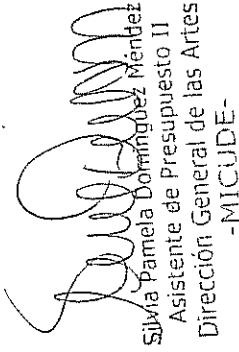 Silvia Pamela Domínguez Méndez
Asistente de Presupuesto II
Dirección General de las Artes
-MICUDE-